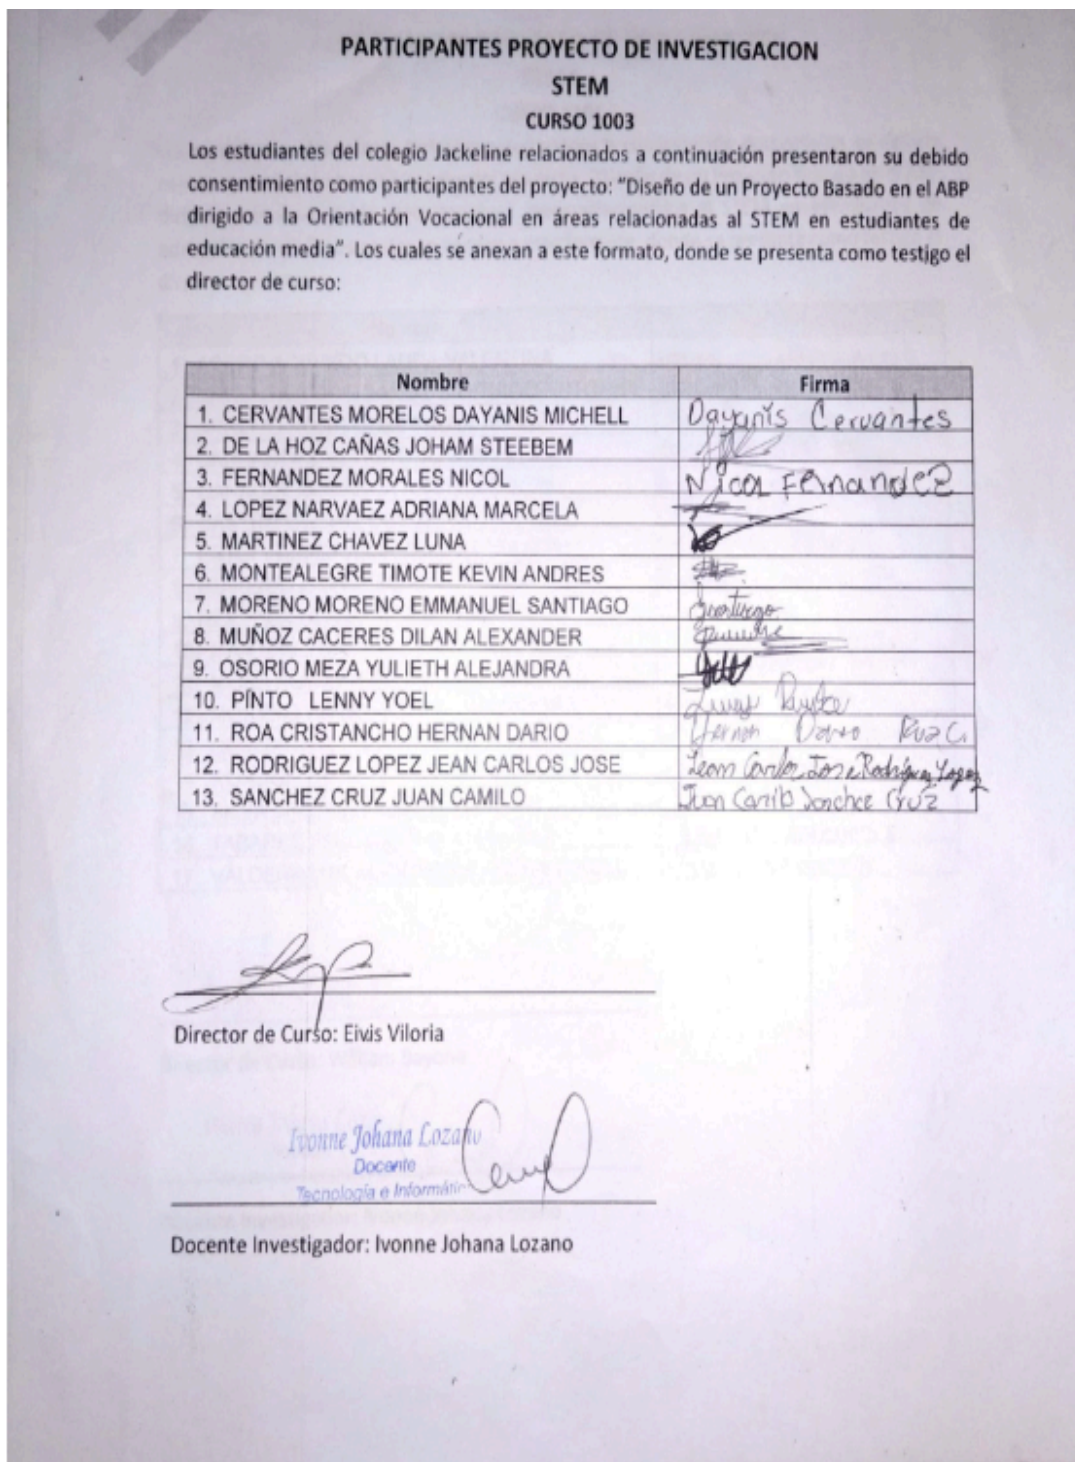 PARTICIPANTES PROYECTO DE INVESTIGACION
STEM
CURSO 1003
Los estudiantes del colegio Jackeline relacionados a continuación presentaron su debido
consentimiento como participantes del proyecto: "Diseño de un Proyecto Basado en el ABP
dirigido a la Orientación Vocacional en áreas relacionadas al STEM en estudiantes de
educación media". Los cuales se anexan a este formato, donde se presenta como testigo el
director de curso:
Nombre Firma
1. CERVANTES MORELOS DAYANIS MICHELL Dayanis Cervantes
2. DE LA HOZ CAÑAS JOHAM STEEBEM
3. FERNANDEZ MORALES NICOL Nicol Fernandez
4. LOPEZ NARVAEZ ADRIANA MARCELA
5. MARTINEZ CHAVEZ LUNA
6. MONTEALEGRE TIMOTE KEVIN ANDRES
7. MORENO MORENO EMMANUEL SANTIAGO Santiago
8. MUÑOZ CACERES DILAN ALEXANDER
9. OSORIO MEZA YULIETH ALEJANDRA
10. PÍNTO LENNY YOEL
11. ROA CRISTANCHO HERNAN DARIO Hernan Dario Roa C.
12. RODRIGUEZ LOPEZ JEAN CARLOS JOSE Jean Carlos Jose Rodriguez Lopez
13. SANCHEZ CRUZ JUAN CAMILO Juan Camilo Sanchez Cruz
Director de Curso: Eivis Viloria
Ivonne Johana Lozano
Docente
Tecnología e Informátic
Docente Investigador: Ivonne Johana Lozano